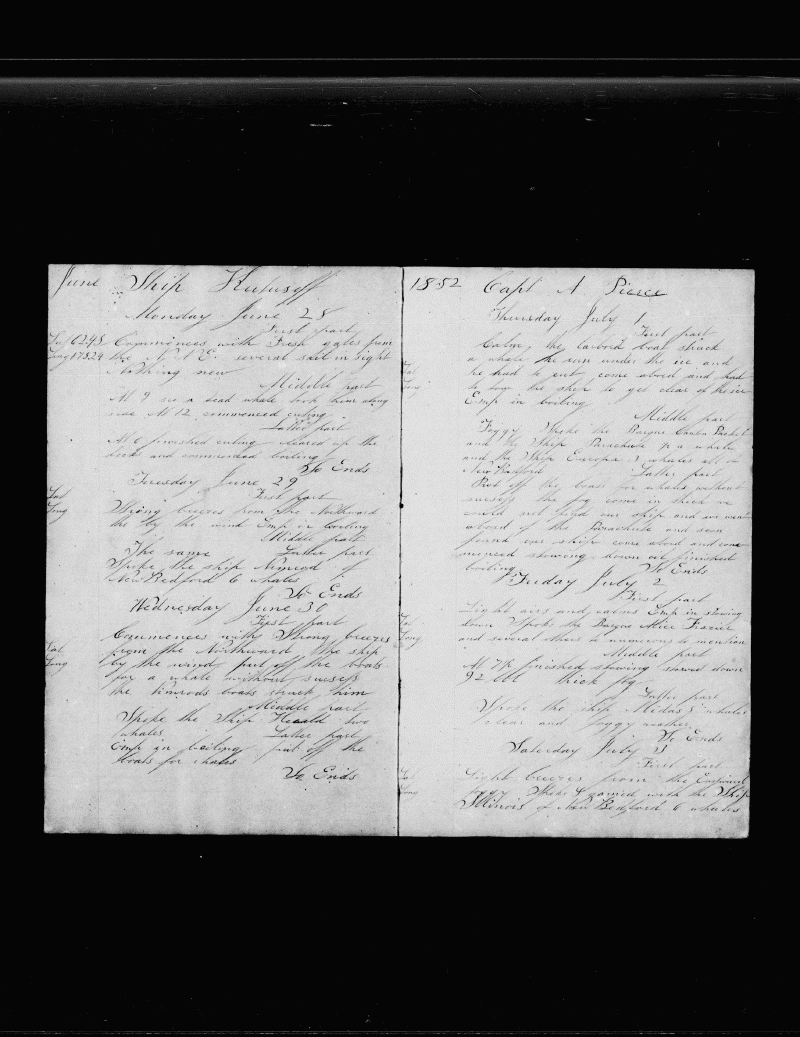 June Ship Kutusoff
Monday June 28
First part
Lat 62.48 Commences with Fresh gales from
Long 178.24 the N.N.E. several sail in sight
Nothing new
Middle part
At 9 see a dead whale took him along
side At 12 commenced cuting
Latter part
At 6 finished cuting cleared up the
decks and commenced boiling
So Ends
Tuesday June 29
First part
Lat Strong breezes from the Northward
Long the by the wind Emp in boiling
Middle part
The same Latter part
Spoke the ship Nimrod of
New Bedford 6 whales
So Ends
Wednesday June 30
First part
Commences with Strong breezes
Lat from the Northward the ship
Long by the wind put off the boats
for a whale without sucsess
the Nimrods boats struck him
Middle part
Spoke the Ship Herald two
whales Latter part
Emp in boiling put off the
boats for whales
So Ends
1852 Capt A Pierce
Thursday July 1
First part
Calm the larbord boat struck
a whale he run under the ice and
Lat he had to cut come abord and had
Long to tow the ship to get clear of the ice
Emp in boiling
Middle part
Foggy Spoke the Barque Canton Packet
and the Ship Parachute a whale
and the Ship Europa 3 whales all of
New Bedford Latter part
Put off the boats for whales without
sucsess the fog come in thick we
could not find our ship and we went
abord of the Parachute and soon
found our ship come abord and com
menced stowing down oil finished
boiling So Ends
Friday July 2
First part
Lat Light airs and calms Emp in stowing
down Spoke the Barque Alice Frazier
Long and several others to numerous to mention
Middle part
At 7 finished stowing stowed down
92 bbl thick fog
Latter part
Spoke the ship Midas 8 whales
clear and foggy weather
So Ends
Saturday July 3
First part
Lat Light breezes from the
Long foggy Spoke & gamed with the Ship
Illinois of New Bedford 6 whales